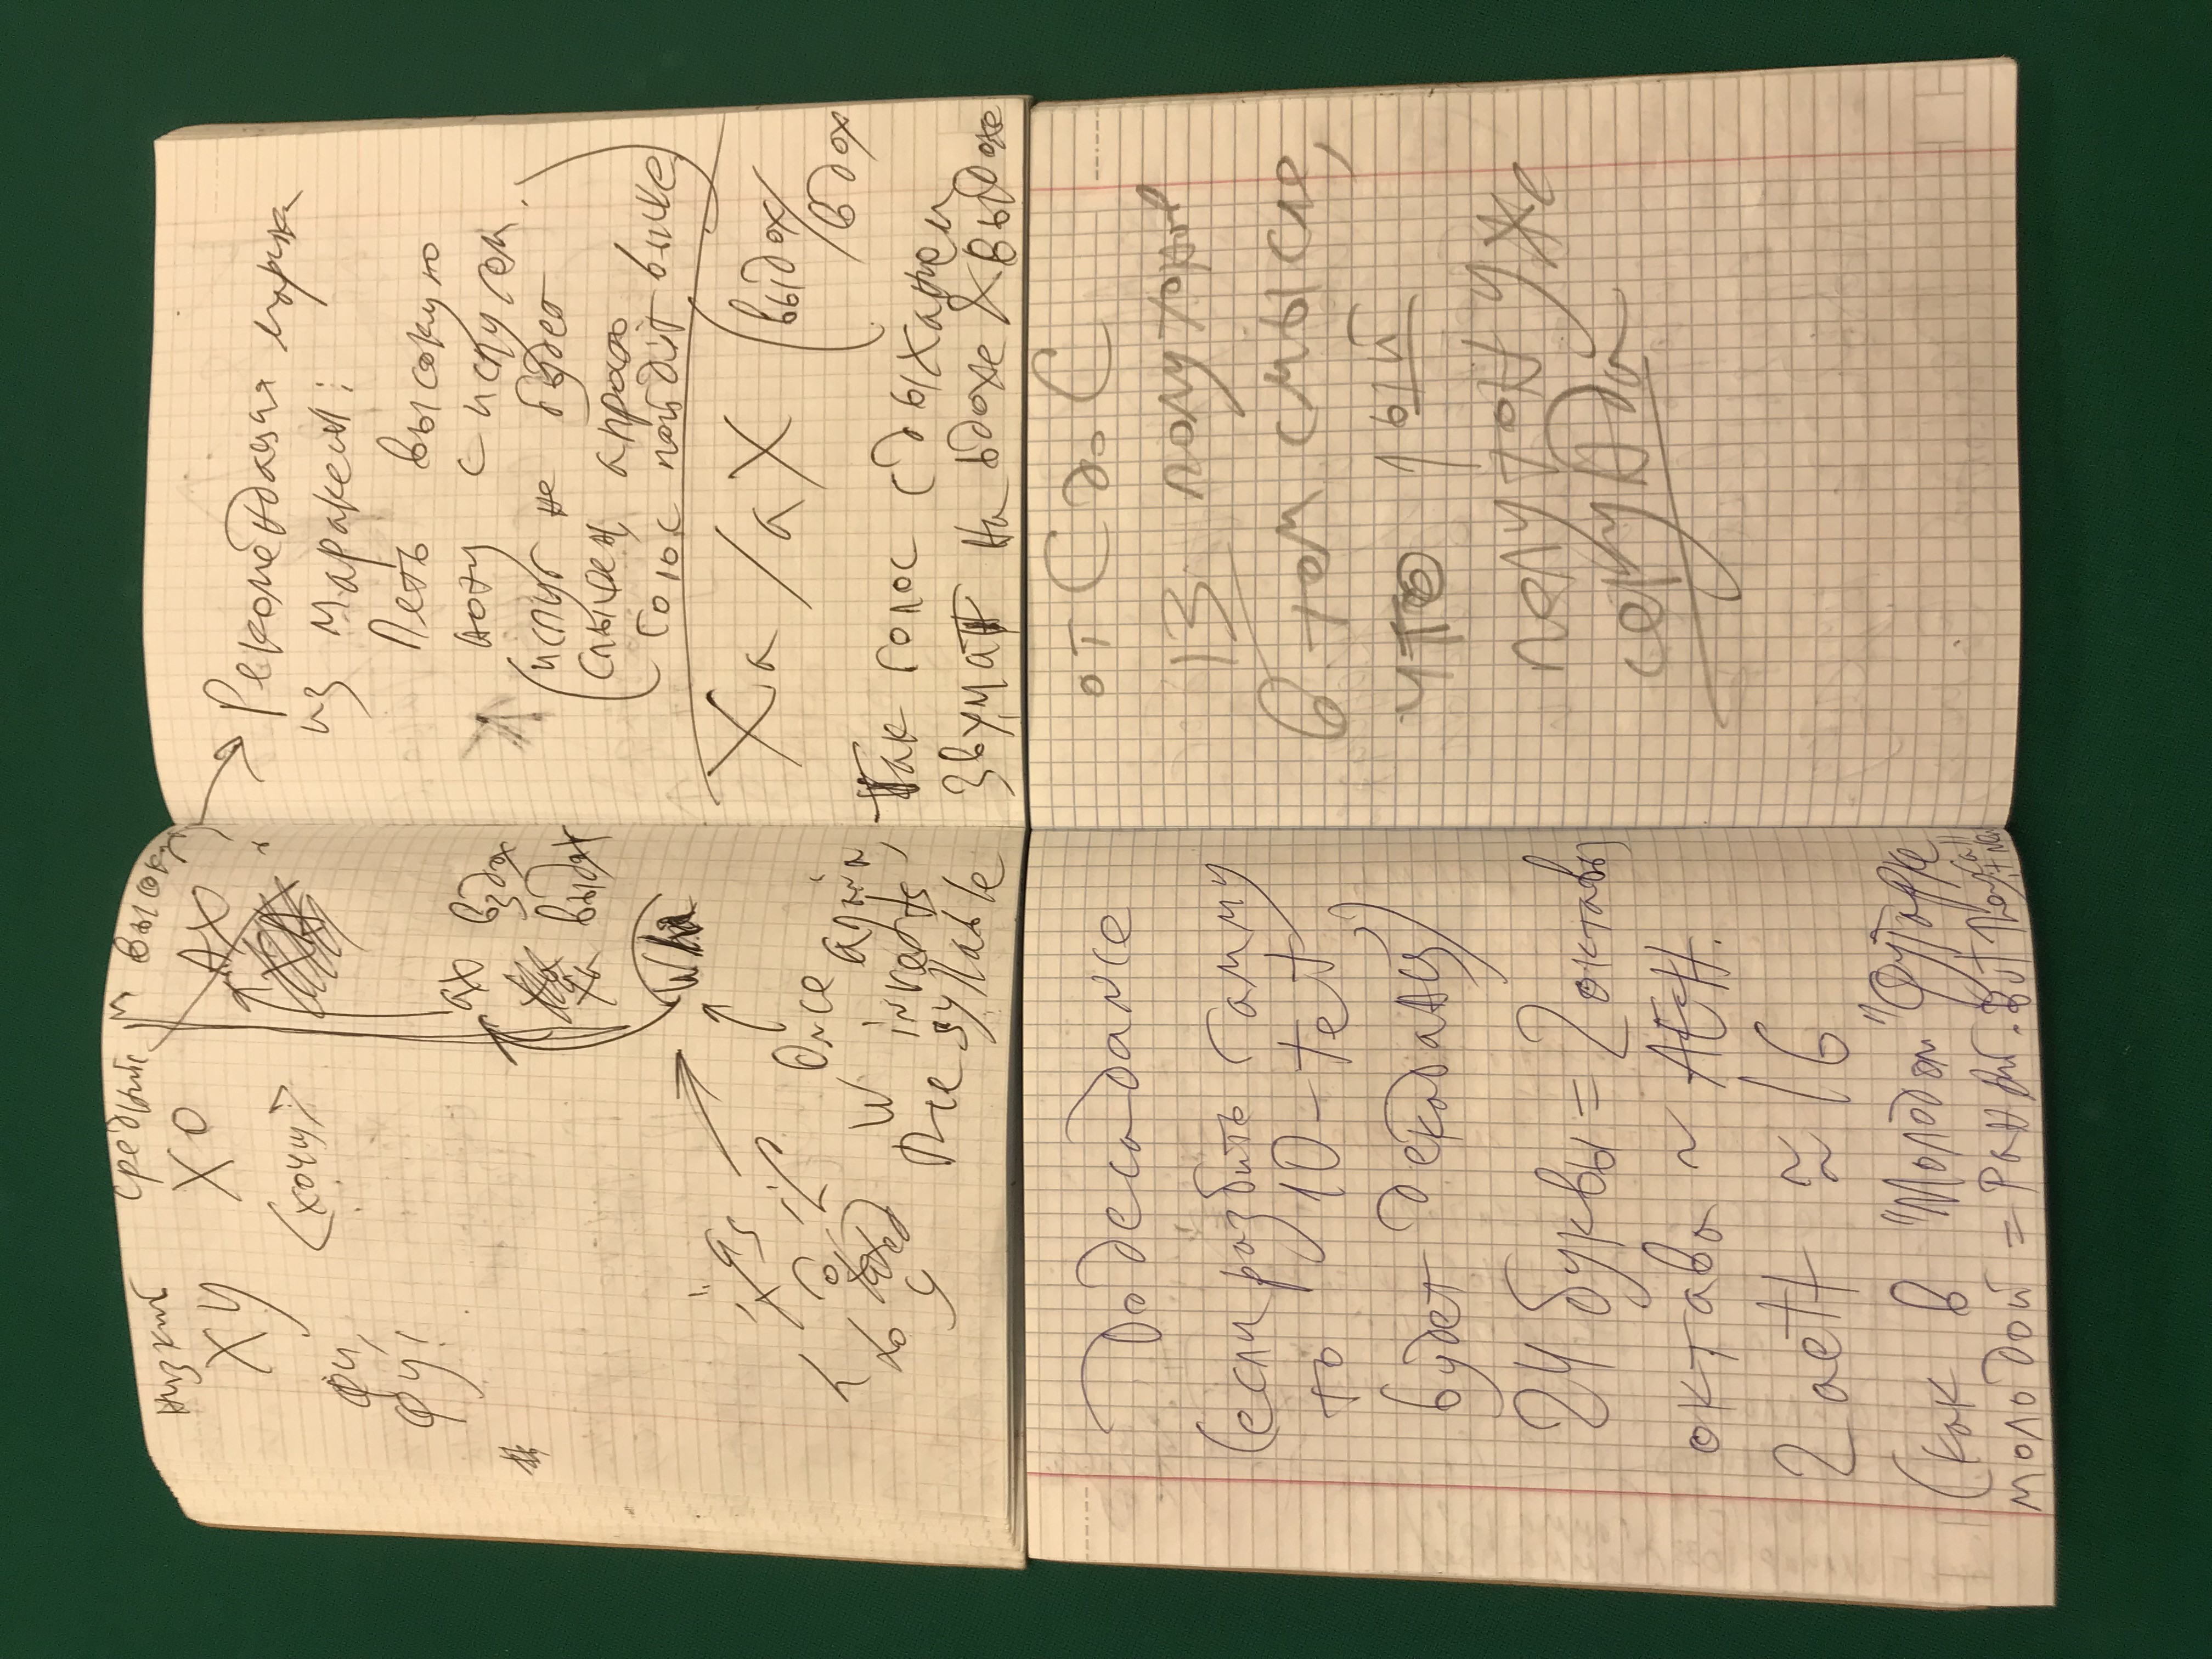 низкий средний и высок
ХУ ХО АХ
(хочу)
фи,
фу!
ах вздох
ха выдох
Wha
Once
again,
W inverts
The syllable
Рекомендация
из Маракеш:
Петь высокую
ноту с испугом
(испуг не будет
слышен, а просто
голос пойдёт выше)
Ха / аХ (выдох/
вдох
Так голос с дыханием
звучат на вдохе & выдохе
Dodecadance
(если разбить гамму
то 10-tet,
будет декаданц)
24 буквы = 2 октавы
октава ~ АЕТТ.
2 aett ≈ 16
(как в "Молодом" Футарке
молодой = Ранний. But They call it new
от С до С
13 полутонов
в том смысле,
что 1ый
полутон уже
секунда